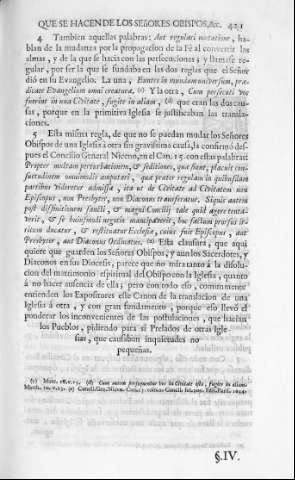 QUE SE HACEN DE LOS SEÑORES OBISPOS, &c. 421
4 Tambien aquellas palabras: Aut regulari notatione, ha-
blan de la mudanza por la propagacion de la Fé al convertir las
almas, y de la que se hacia con las persecuciones; y llamase re-
gular, por ser la que se fundaba en las dos reglas que el Señor
dió en su Evangelio. La una, Euntes in mundum universum, præ-
dicate Evangelium omni creaturæ. (c) Y la otra, Cum persecuti vos
fuerint in una Civitate, fugite in aliam; (d) que eran las dos cau-
sas, porque en la primitiva Iglesia se justificaban las transla-
ciones.
5 Esta misma regla, de que no se puedan mudar los Señores
Obispos de una Iglesia á otra sin gravisima causa, la confirmó des-
pues el Concilio General Niceno, en el Can. 15. con estas palabras:
Propter multam perturbationem, & seditiones, quæ fiunt, placuit con-
suetudinem omnimodis amputari, quæ præter regulam in quibusdam
partibus videretur admissa, ita ut de Civitate ad Civitatem non
Episcopus, non Presbyter, non Diaconus transferatur. Siquis autem
post diffinitionem sancti, & magni Concilij tale quid agere tenta-
verit, & se huiusmodi negotio mancipaverit, hoc factum prorsus in
ritum ducatur, & restituatur Ecclesiæ, cuius fuit Episcopus, aut
Presbyter, aut Diaconus Ordinatus. (e) Esta clausura, que aqui
quiere que guarden los Señores Obispos, y aun los Sacerdotes, y
Diaconos en sus Diocesis, parece que no mira tanto á la disolu-
cion del matrimonio espiritual del Obispo con la Iglesia, quanto
á no hacer ausencia de ella; pero con todo eso, comunmente
entienden los Expositores este Canon de la translacion de una
Iglesia á otra, y con gran fundamento, porque eso llevó el
ponderar los inconvenientes de las postulaciones, que hacian
los Pueblos, pidiendo para sí Prelados de otras Igle-
sias, que causaban inquietudes no
pequeñas.
§.IV.